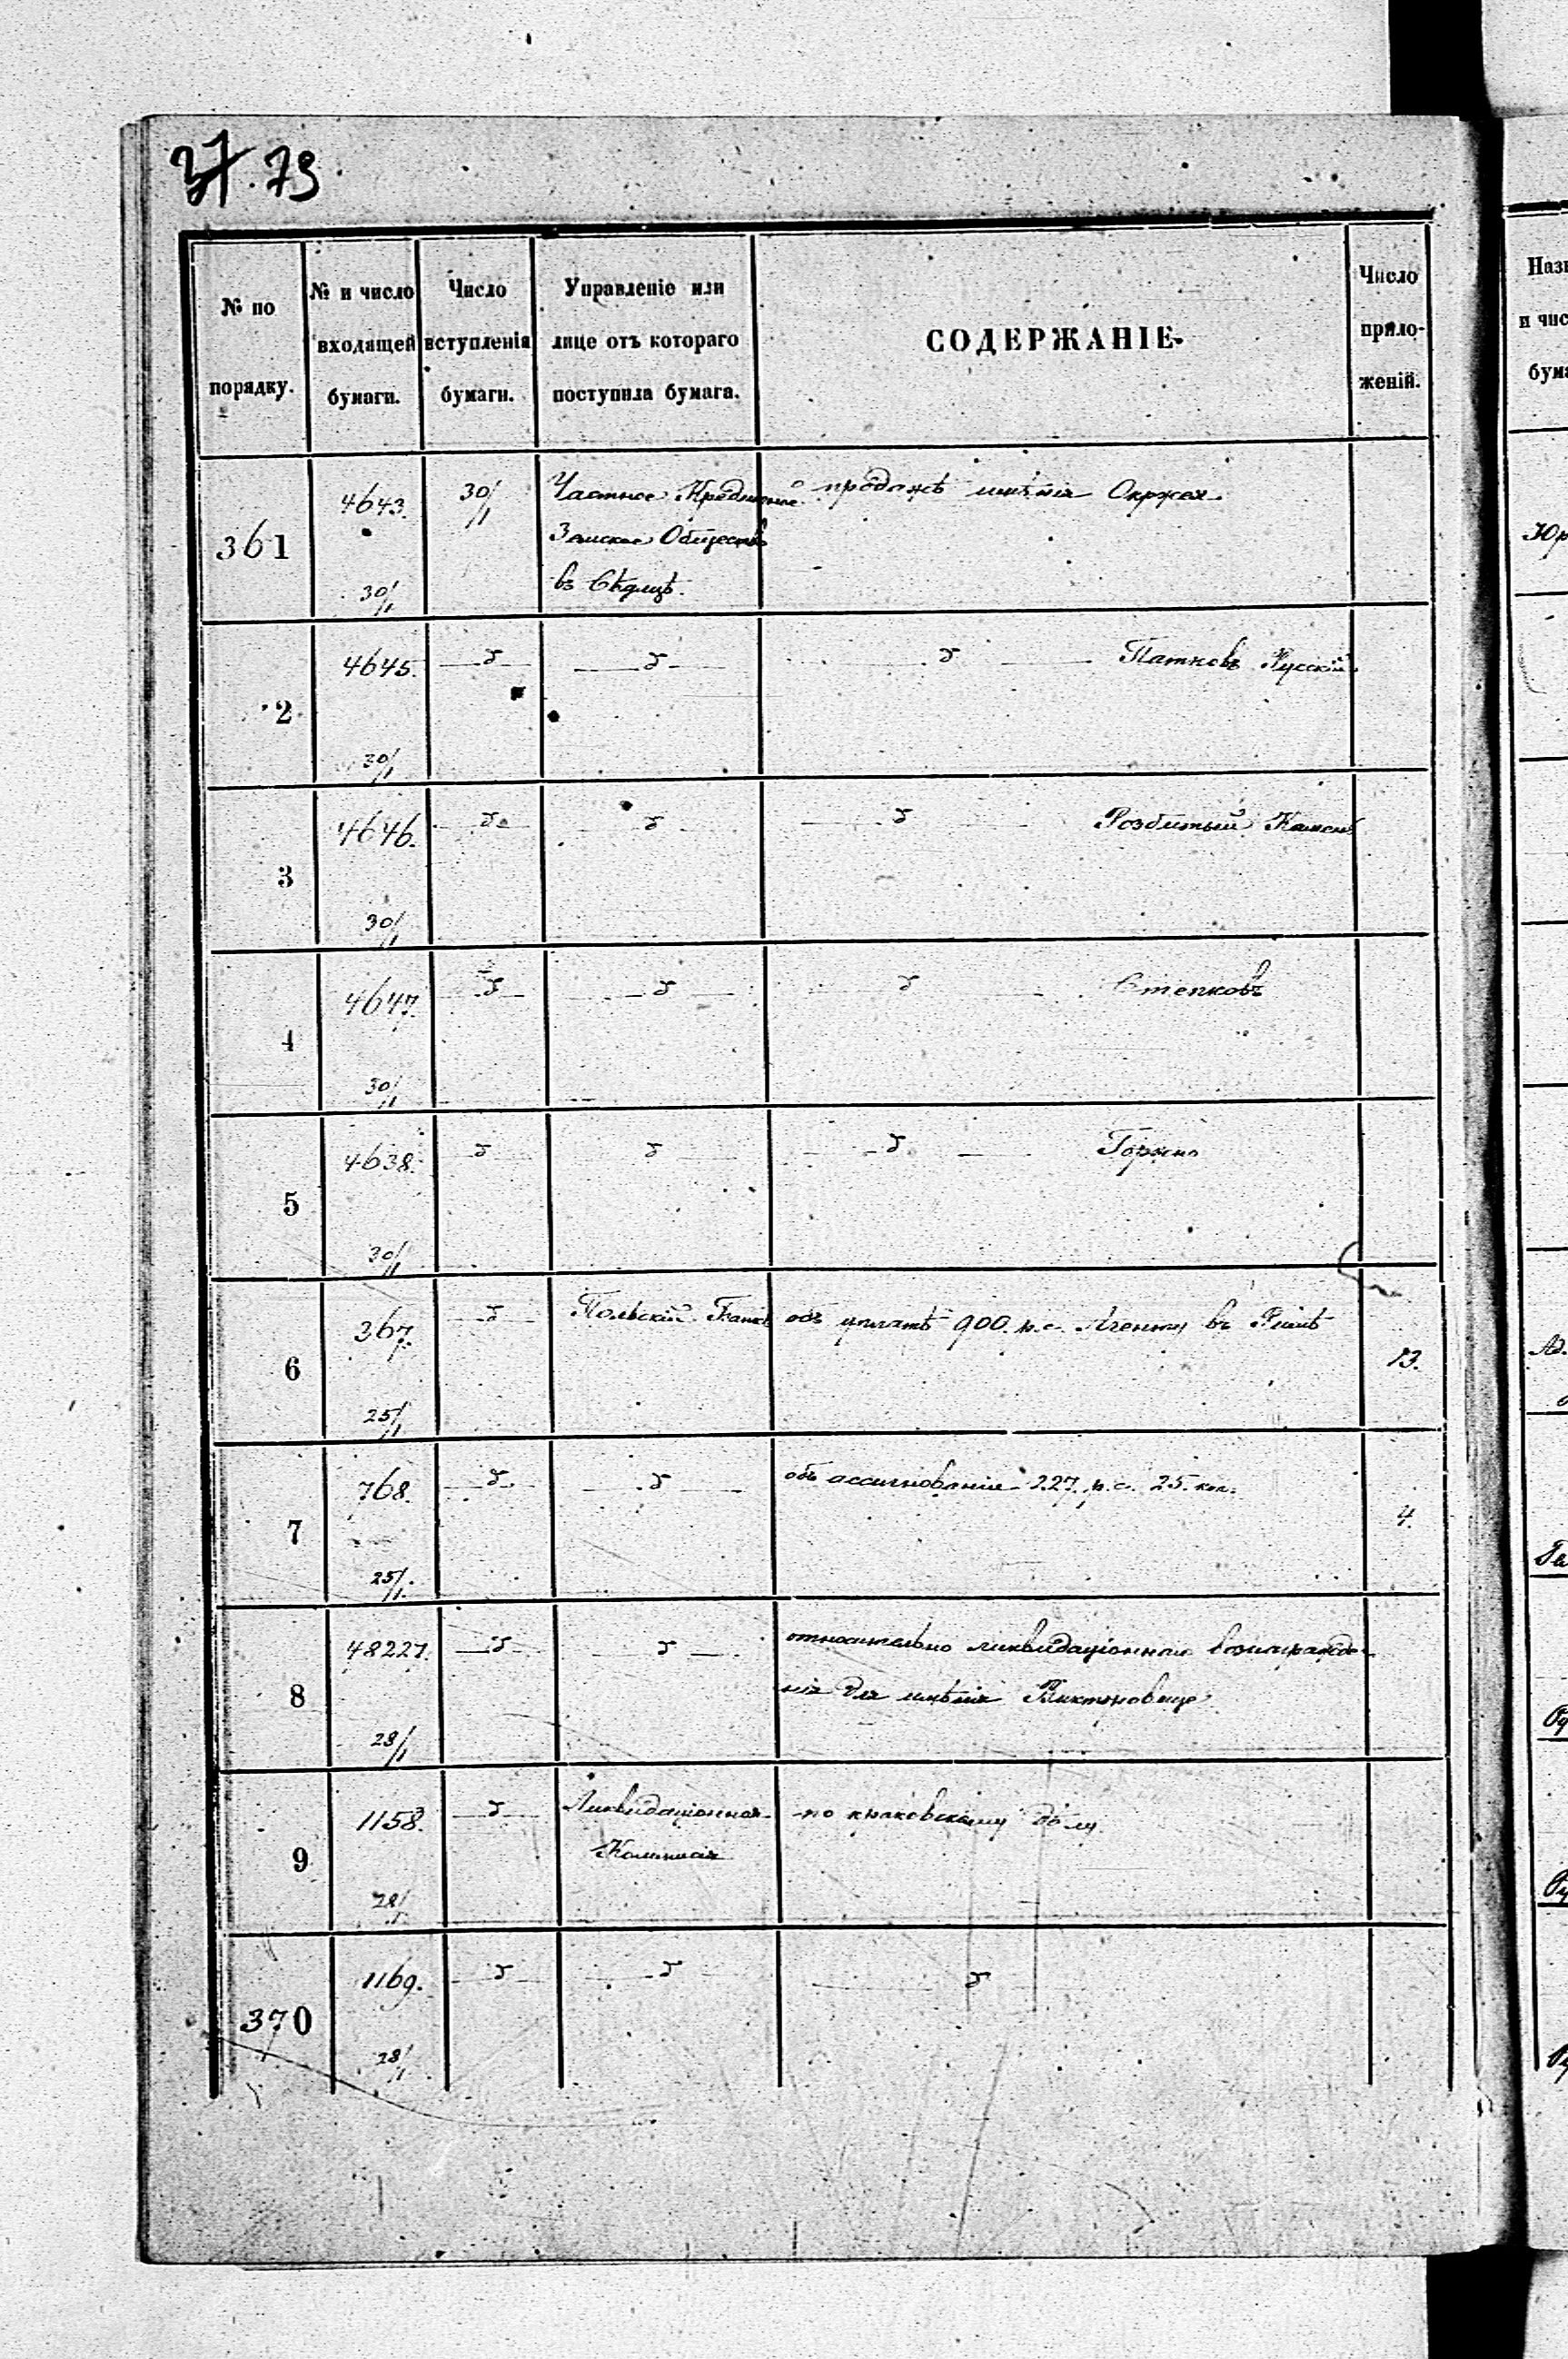 37. 73
№ по порядку.
№ и число входящей бумаги.
Число вступленія бумаги.
Управленіе или лице отъ котораго поступила бумага.
СОДЕРЖАНІЕ
Число прило-женій.
361 4643. 30/1 30/1 Частное Кредитное о продажѣ имѣнія Окржея
Земское Общество
въ Сѣдлцѣ.
2 4645. 30/1 —д— —д— —д— Патковъ Русскій
3 4646. 30/1 —д— —д— —д— Розбитый Камень
4 4647. 30/1 —д— —д— —д— Степковъ
5 4638. 30/1 —д— —д— —д— Горжно
6 367. 25/1 —д— Польскій Банкъ объ уплатѣ 900. р.с. Агенту въ Римѣ 13.
7 768. 25/1. —д— —д— объ ассигнованіи 227. р.с. 25. коп. 4.
8 48227. 28/1 —д— —д— относительно ликвидаціоннаго вознагражде-
нія для имѣнія
9 1158. 28/1 —д— Ликвидаціонная по краковскому дому
Коммисія
370 1169. 28/1 —д— —д— —д—